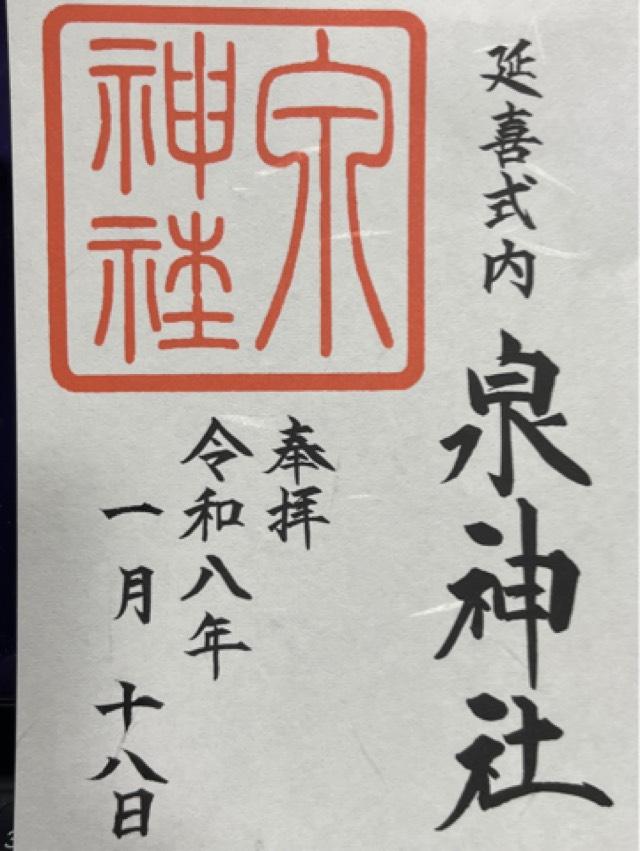 延喜式内 泉神社
奉拝
令和八年
一月 十八日
泉
神社